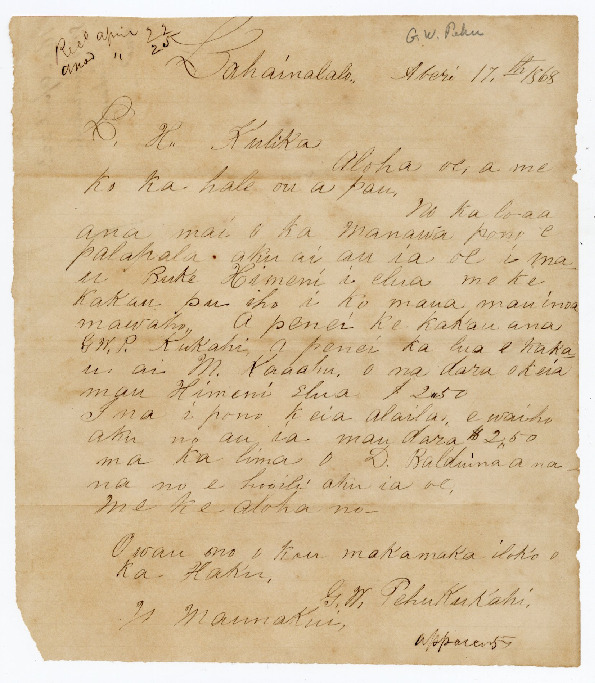 Recd April 22
ansd " 25
G. W. Pehu
Lahainaluna, Aperi 17.th 1868
L. H. Kulika
Aloha oe, a me
ko ka hale ou a pau,
No ka loaa
ana mai o ka manawa pono e
palapala aku ai au ia oe i ma
u Buke Himeni i elua me ke
kakau pu iho i ko maua mau inoa
mawaho, A penei ke kakau ana
G.W.P. Kukahi, A penei ka lua e kaka
u ai M. Kaaahu, o na dara o keia
mau Himeni Elua $ 2.50
I na i pono keia alaila, e waiho
aku no au ia mau dara $ 2,50
ma ka lima o D. Balduina a na
na no e hooili aku ia oe,
Me ke aloha no
Owau no o kou makamaka iloko o
ka Haku,
G. W. PehuKukahi,